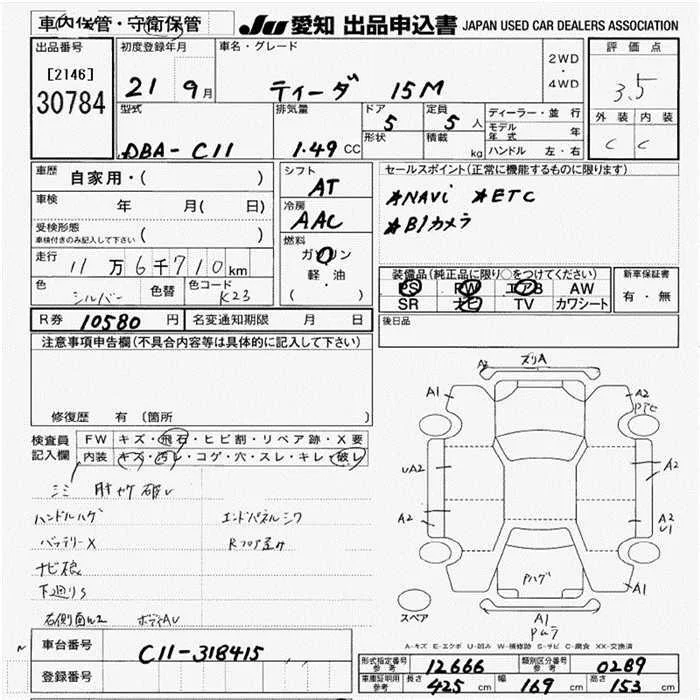 車内保管・守衛保管 JU 愛知 出品申込書 JAPAN USED CAR DEALERS ASSOCIATION
出品番号 初度登録年月 車名・グレード 評価点
[2146] 30784 21 9月 ティーダ 15M 2WD・4WD 3.5
型式 排気量 ドア 5 定員 5人 ディーラー・並行 外装 内装
DBA-C11 1.49 CC 形状 積載 kg モデル年式 年 C C
ハンドル 左・右
車歴 自家用・( ) シフト AT セールスポイント(正常に機能するものに限ります)
車検 年 月( 日) 冷房 AAC ★NAVi ★ETC
受検形態 車検付きのみ記入して下さい ( ) 燃料 ガソリン ★B1カメラ
走行 11万6千710km 軽・油
色 シルバー 色替 色コード K23 ( )
装備品(純正品に限り○をつけてください) 新車保証書
PS PW エアB AW 有・無
SR ナビ TV カワシート
R券 10580円 名変通知期限 月 日 後日品
注意事項申告欄(不具合内容等は具体的に記入して下さい)
修復歴 有 (箇所 )
検査員記入欄 FW キズ・飛石・ヒビ割・リペア跡・X要
内装 キズ・汚レ・コゲ・穴・スレ・キレ・破レ
ハンドルハゲ エンドパネルシワ
バッテリーX
下廻りS
A2 ズリA
A1 A2
UA2 A2
A2 A2 U1
Pハゲ A1
スペア A1
A-キズ E-エクボ U-凹み W-補修跡 S-サビ C-腐食 XX-交換済
車台番号 C11-318415
登録番号
形式指定番号 参考 12666 類別区分番号 参考 0289
車庫証明用 参考 長さ 425 cm 幅 169 cm 高さ 153 cm